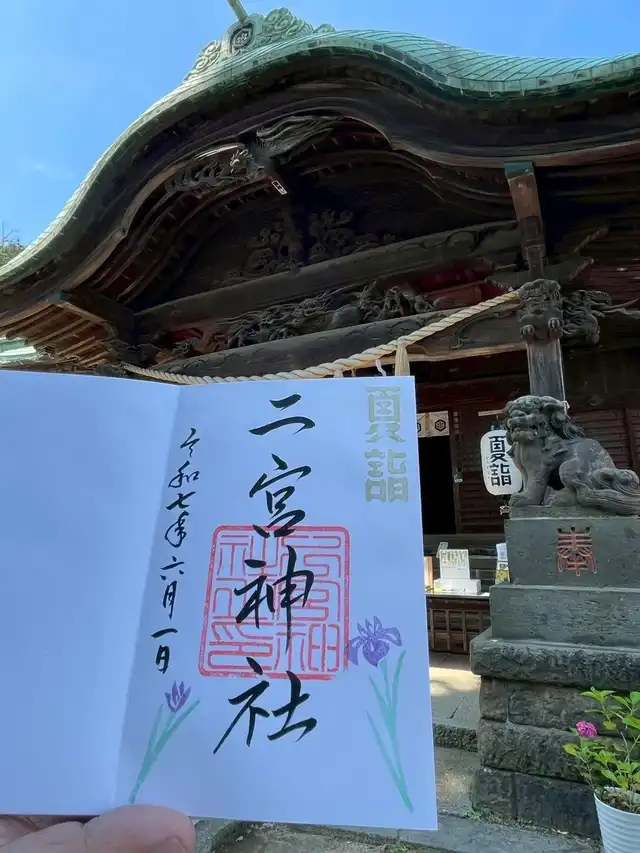 夏詣
二宮神社
令和七年六月一日
夏詣
奉